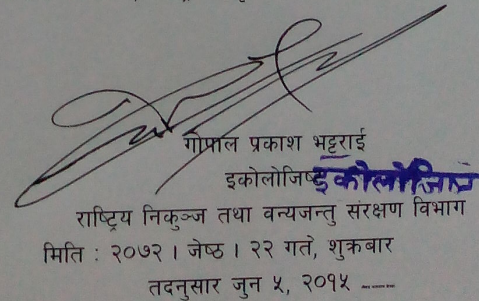 गोपाल प्रकाश भट्टराई
इकोलोजिष्ट इकोलोजिष्ट
राष्ट्रिय निकुञ्ज तथा वन्यजन्तु संरक्षण विभाग
मिति : २०७२ । जेष्ठ । २२ गते, शुक्रबार
तदनुसार जुन ५, २०१५